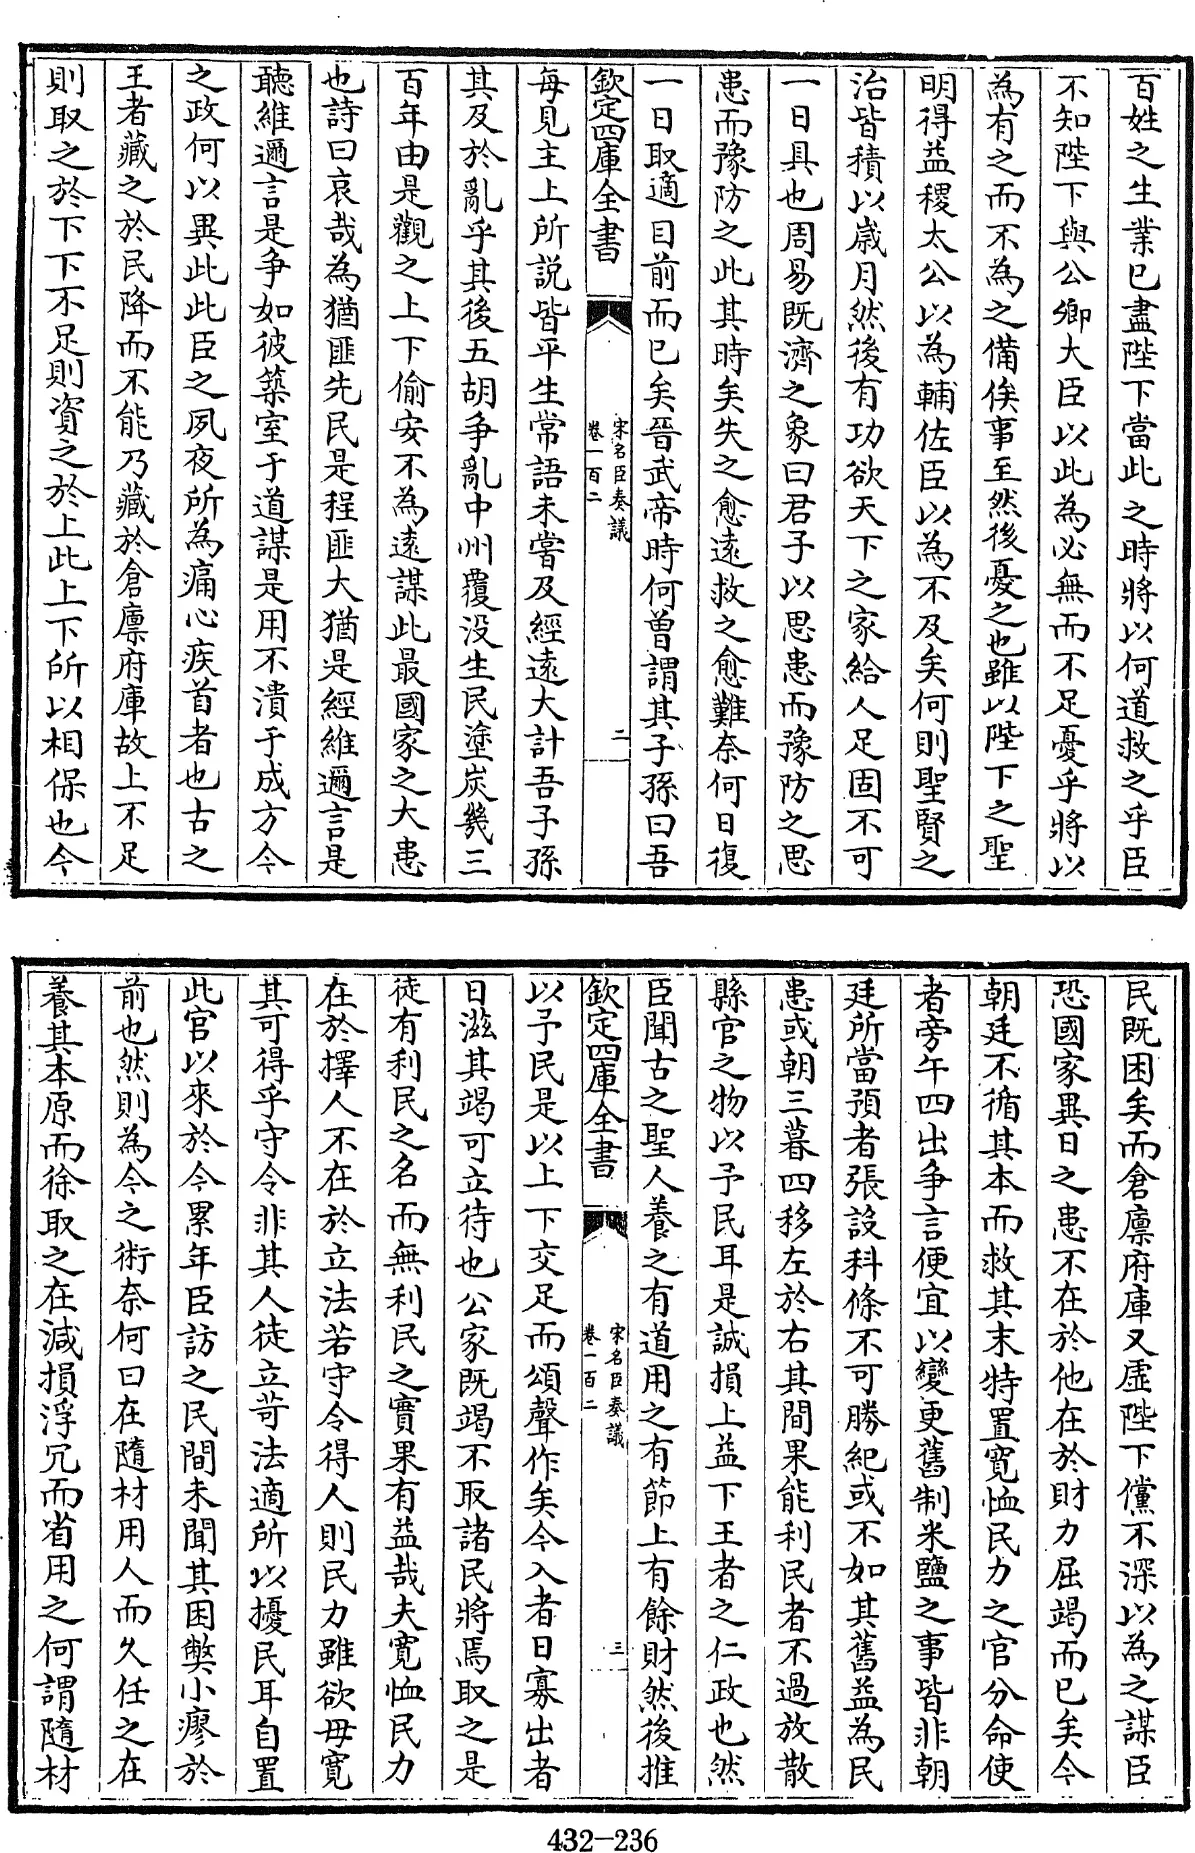 百姓之生業已盡陛下當此之時將以何道救之乎臣
不知陛下與公卿大臣以此為必無而不足憂乎將以
為有之而不為之備俟事至然後憂之也雖以陛下之聖
明得益稷太公以為輔佐臣以為不及矣何則聖賢之
治皆積以歲月然後有功欲天下之家給人足固不可
一日具也周易既濟之象曰君子以思患而豫防之思
患而豫防之此其時矣失之愈遠救之愈難奈何日復
一日取適目前而已矣晉武帝時何曽謂其子孫曰吾
欽定四庫全書
宋名臣奏議
卷一百二
二
每見主上所説皆平生常語未嘗及經遠大計吾子孫
其及於亂乎其後五胡争亂中州覆没生民塗炭幾三
百年由是觀之上下偷安不為逺謀此最國家之大患
也詩曰哀哉為猶匪先民是程匪大猶是經維邇言是
聽維邇言是争如彼築室于道謀是用不潰于成方今
之政何以異此此臣之夙夜所為痛心疾首者也古之
王者藏之於民降而不能乃藏於倉廪府庫故上不足
則取之於下下不足則資之於上此上下所以相保也今
民既困矣而倉廪府庫又虛陛下儻不深以為之謀臣
恐國家異日之患不在於他在於財力屈竭而已矣今
朝廷不循其本而救其末特置寛恤民力之官分命使
者旁午四出争言便宜以變更舊制米鹽之事皆非朝
廷所當預者張設科條不可勝紀或不如其舊益為民
患或朝三暮四移左於右其間果能利民者不過放散
縣官之物以予民耳是誠損上益下王者之仁政也然
臣聞古之聖人養之有道用之有節上有餘財然後推
欽定四庫全書
宋名臣奏議
卷一百二
三
以予民是以上下交足而頌聲作矣今入者日寡出者
日滋其竭可立待也公家既竭不取諸民將焉取之是
徒有利民之名而無利民之實果有益哉夫寛恤民力
在於擇人不在於立法若守令得人則民力雖欲毋寛
其可得乎守令非其人徒立苛法適所以擾民耳自置
此官以來於今累年臣訪之民間未聞其困弊小瘳於
前也然則為今之術奈何曰在隨材用人而久任之在
養其本原而徐取之在減損浮冗而省用之何謂隨材
432-236